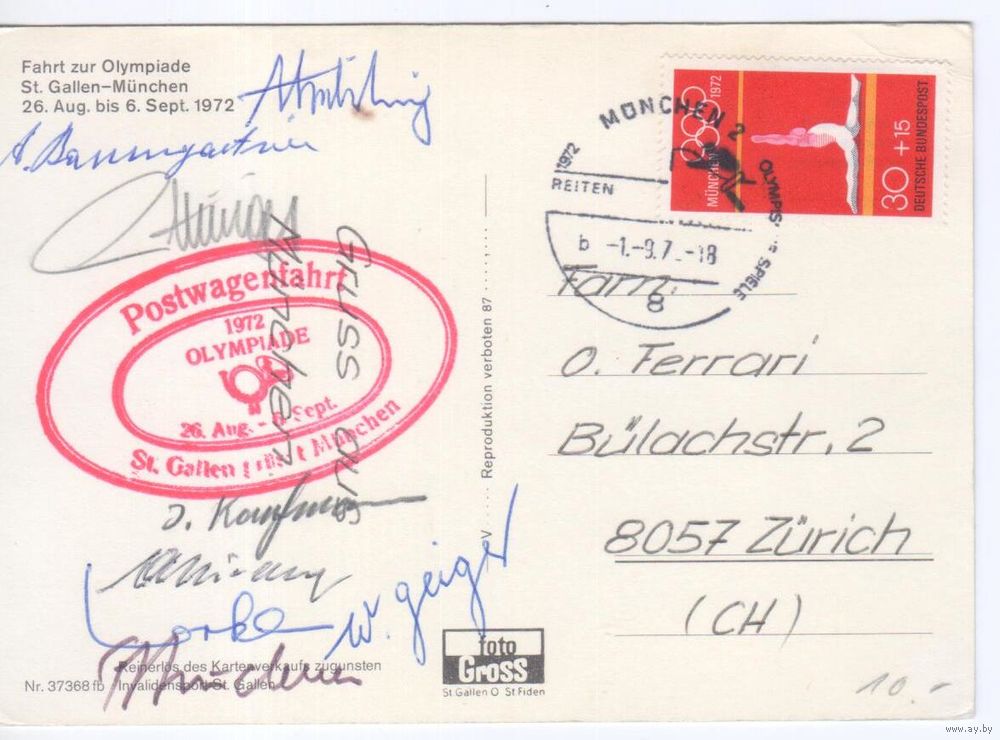 Fahrt zur Olympiade
St. Gallen–München
26. Aug. bis 6. Sept. 1972
A. Baumgartner
Postwagenfahrt
1972
OLYMPIADE
26. Aug. - 6. Sept.
St. Gallen München
Gruss aus
München
J. Kaufmann
W. Geiger
Reinerlös des Kartenverkaufs zugunsten
Invalidensport St. Gallen
Nr. 37368 fb
foto
Gross
St Gallen O St Fiden
V ..... Reproduktion verboten 87
MÜNCHEN 2
1972
REITEN
OLYMPISCHE SPIELE
b -1.-9.7 -18
8
MÜNCHEN 1972
30+15
DEUTSCHE BUNDESPOST
Fam.
O. Ferrari
Bülachstr. 2
8057 Zürich
(CH)
10.-
www.ay.by